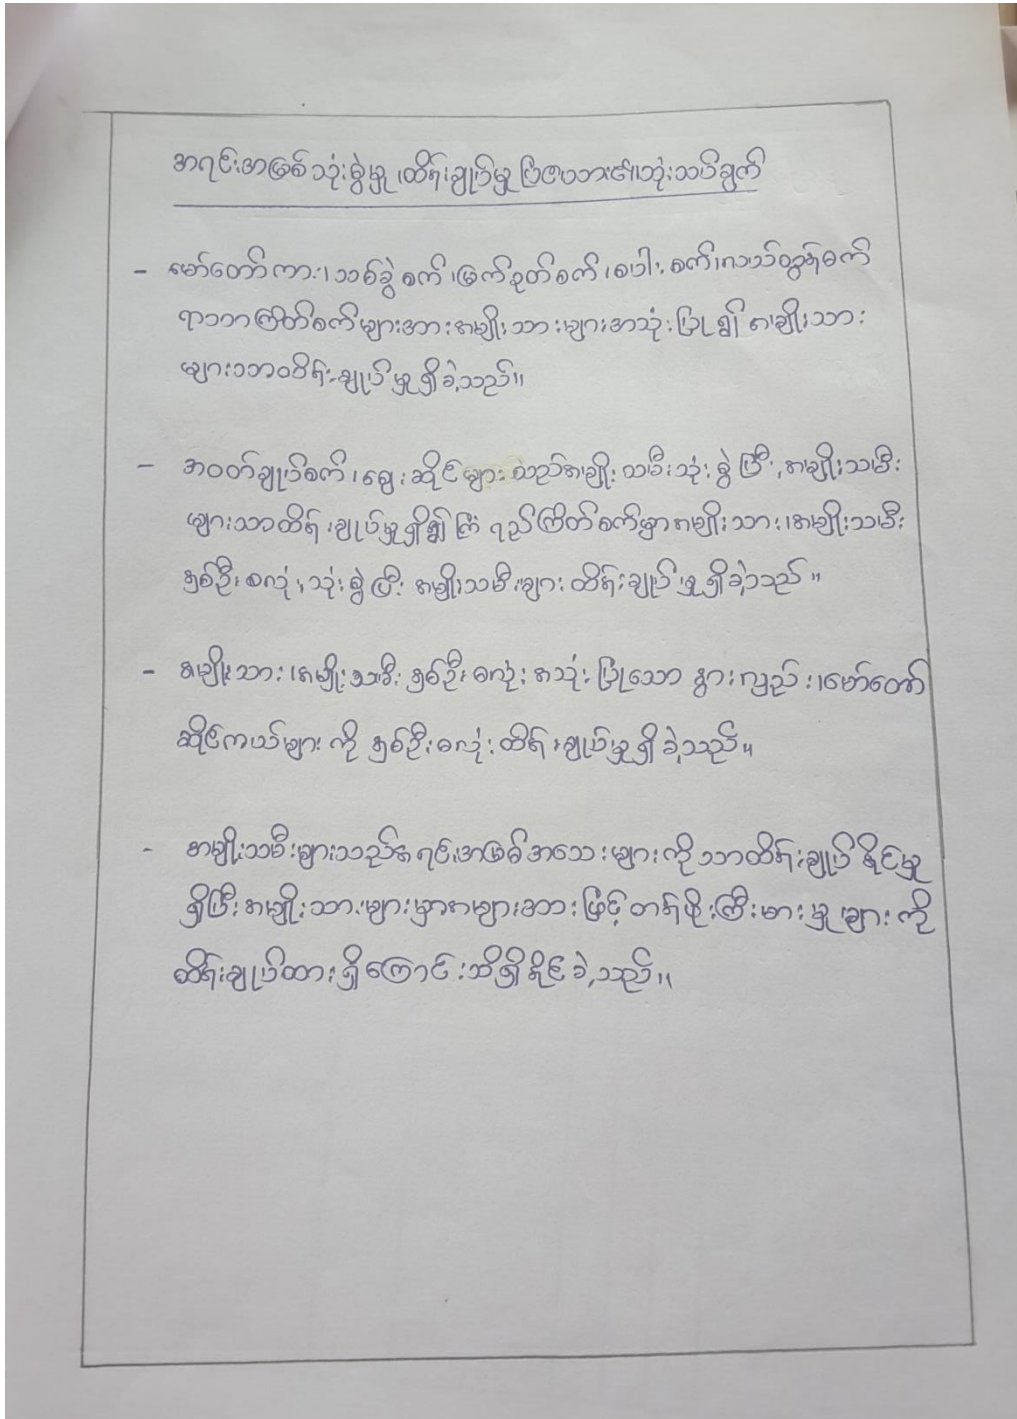 အရင်းအမြစ်သုံးစွဲမှု၊ထိန်းချုပ်မှု ပြဇယား၏သုံးသပ်ချက်
- မော်တော်ကား၊သစ်ခွဲစက်၊မြက်ခုတ်စက်၊စပါးစက်၊လယ်ထွန်စက်
ရာဘာကြိတ်စက်များအားအမျိုးသားများအသုံးပြု၍အမျိုးသား
များသာထိန်းချုပ်မှုရှိခဲ့သည်။
- အဝတ်ချုပ်စက်၊ဈေးဆိုင်များသည်အမျိုးသမီးသုံးစွဲပြီးအမျိုးသမီး
များသာထိန်းချုပ်မှုရှိ၍ကြံရည်ကြိတ်စက်မှာအမျိုးသား၊အမျိုးသမီး
နှစ်ဦးစလုံးသုံးစွဲပြီးအမျိုးသမီးများထိန်းချုပ်မှုရှိခဲ့သည်။
- အမျိုးသား၊အမျိုးသမီးနှစ်ဦးစလုံးအသုံးပြုသောနွားလှည်း၊မော်တော်
ဆိုင်ကယ်များကိုနှစ်ဦးစလုံးထိန်းချုပ်မှုရှိခဲ့သည်။
- အမျိုးသမီးများသည်အရင်းအမြစ်အသေးများကိုသာထိန်းချုပ်နိုင်မှု
ရှိပြီးအမျိုးသားများမှာအများအားဖြင့်တန်ဖိုးကြီးမားမှုများကို
ထိန်းချုပ်ထားရှိကြောင်းသိရှိနိုင်ခဲ့သည်။